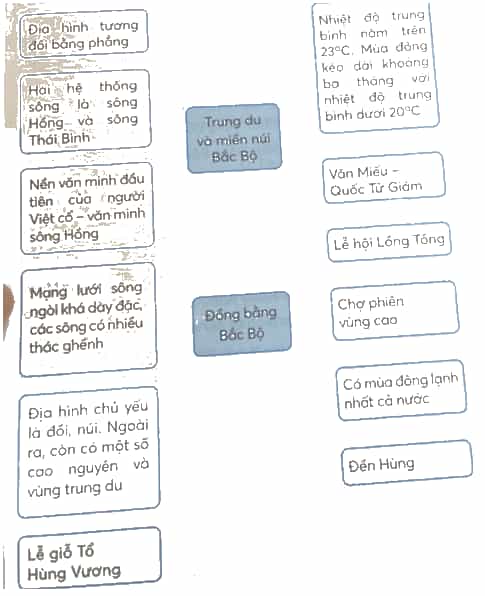 Địa hình tương
đối bằng phẳng
Hai hệ thống
sông là sông
Hồng và sông
Thái Bình
Nền văn minh đầu
tiên của người
Việt cổ – văn minh
sông Hồng
Mạng lưới sông
ngòi khá dày đặc,
các sông có nhiều
thác ghềnh
Địa hình chủ yếu
là đồi, núi. Ngoài
ra, còn có một số
cao nguyên và
vùng trung du
Lễ giỗ Tổ
Hùng Vương
Trung du
và miền núi
Bắc Bộ
Đồng bằng
Bắc Bộ
Nhiệt độ trung
bình năm trên
23°C. Mùa đông
kéo dài khoảng
ba tháng với
nhiệt độ trung
bình dưới 20°C
Văn Miếu –
Quốc Tử Giám
Lễ hội Lồng Tồng
Chợ phiên
vùng cao
Có mùa đông lạnh
nhất cả nước
Đền Hùng